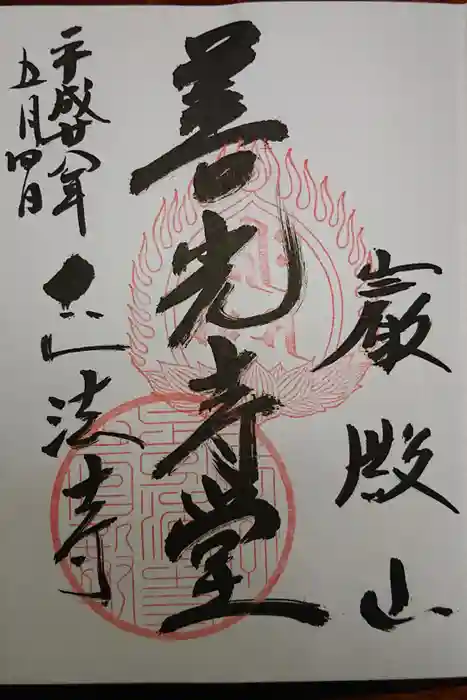 巌殿山
善光寺堂
平成廿八年
五月四日
正法寺